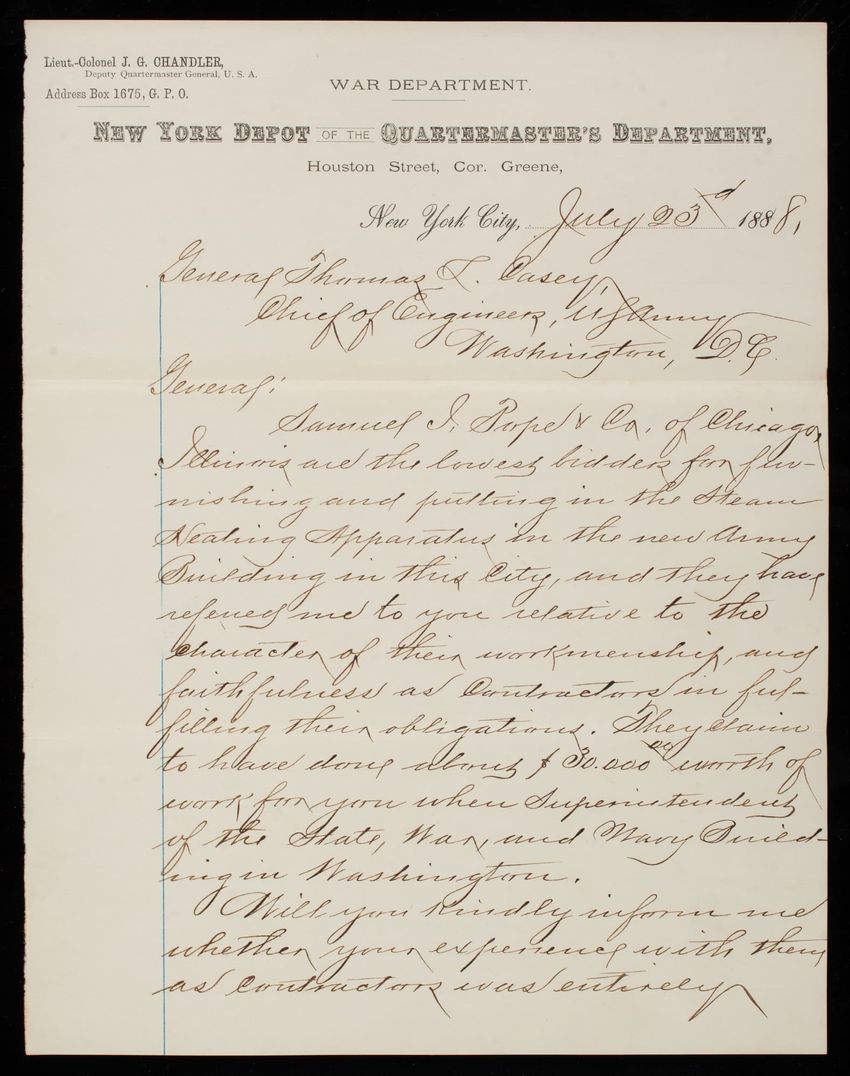 Lieut.-Colonel J. G. CHANDLER,
Deputy Quartermaster General, U. S. A.
Address Box 1675, G. P. O.
WAR DEPARTMENT.
NEW YORK DEPOT OF THE QUARTERMASTER'S DEPARTMENT,
Houston Street, Cor. Greene,
New York City, July 23d 1888,
General Thomas L. Casey,
Chief of Engineers, U S Army
Washington, D.C.
General:
Samuel I. Pope & Co. of Chicago,
Illinois are the lowest bidders for fur-
nishing and putting in the Steam
Heating Apparatus in the new Army
Building in this City, and they have
refered me to you relative to the
Character of their workmenship, and
faithfulness as Contractors in ful-
filling their obligations. They claim
to have done about $30.000.00 worth of
work for you when Superintendent
of the State, War, and Navy Build-
ing in Washington.
Will you kindly inform me
whether your experience with them
as Contractors was entirely